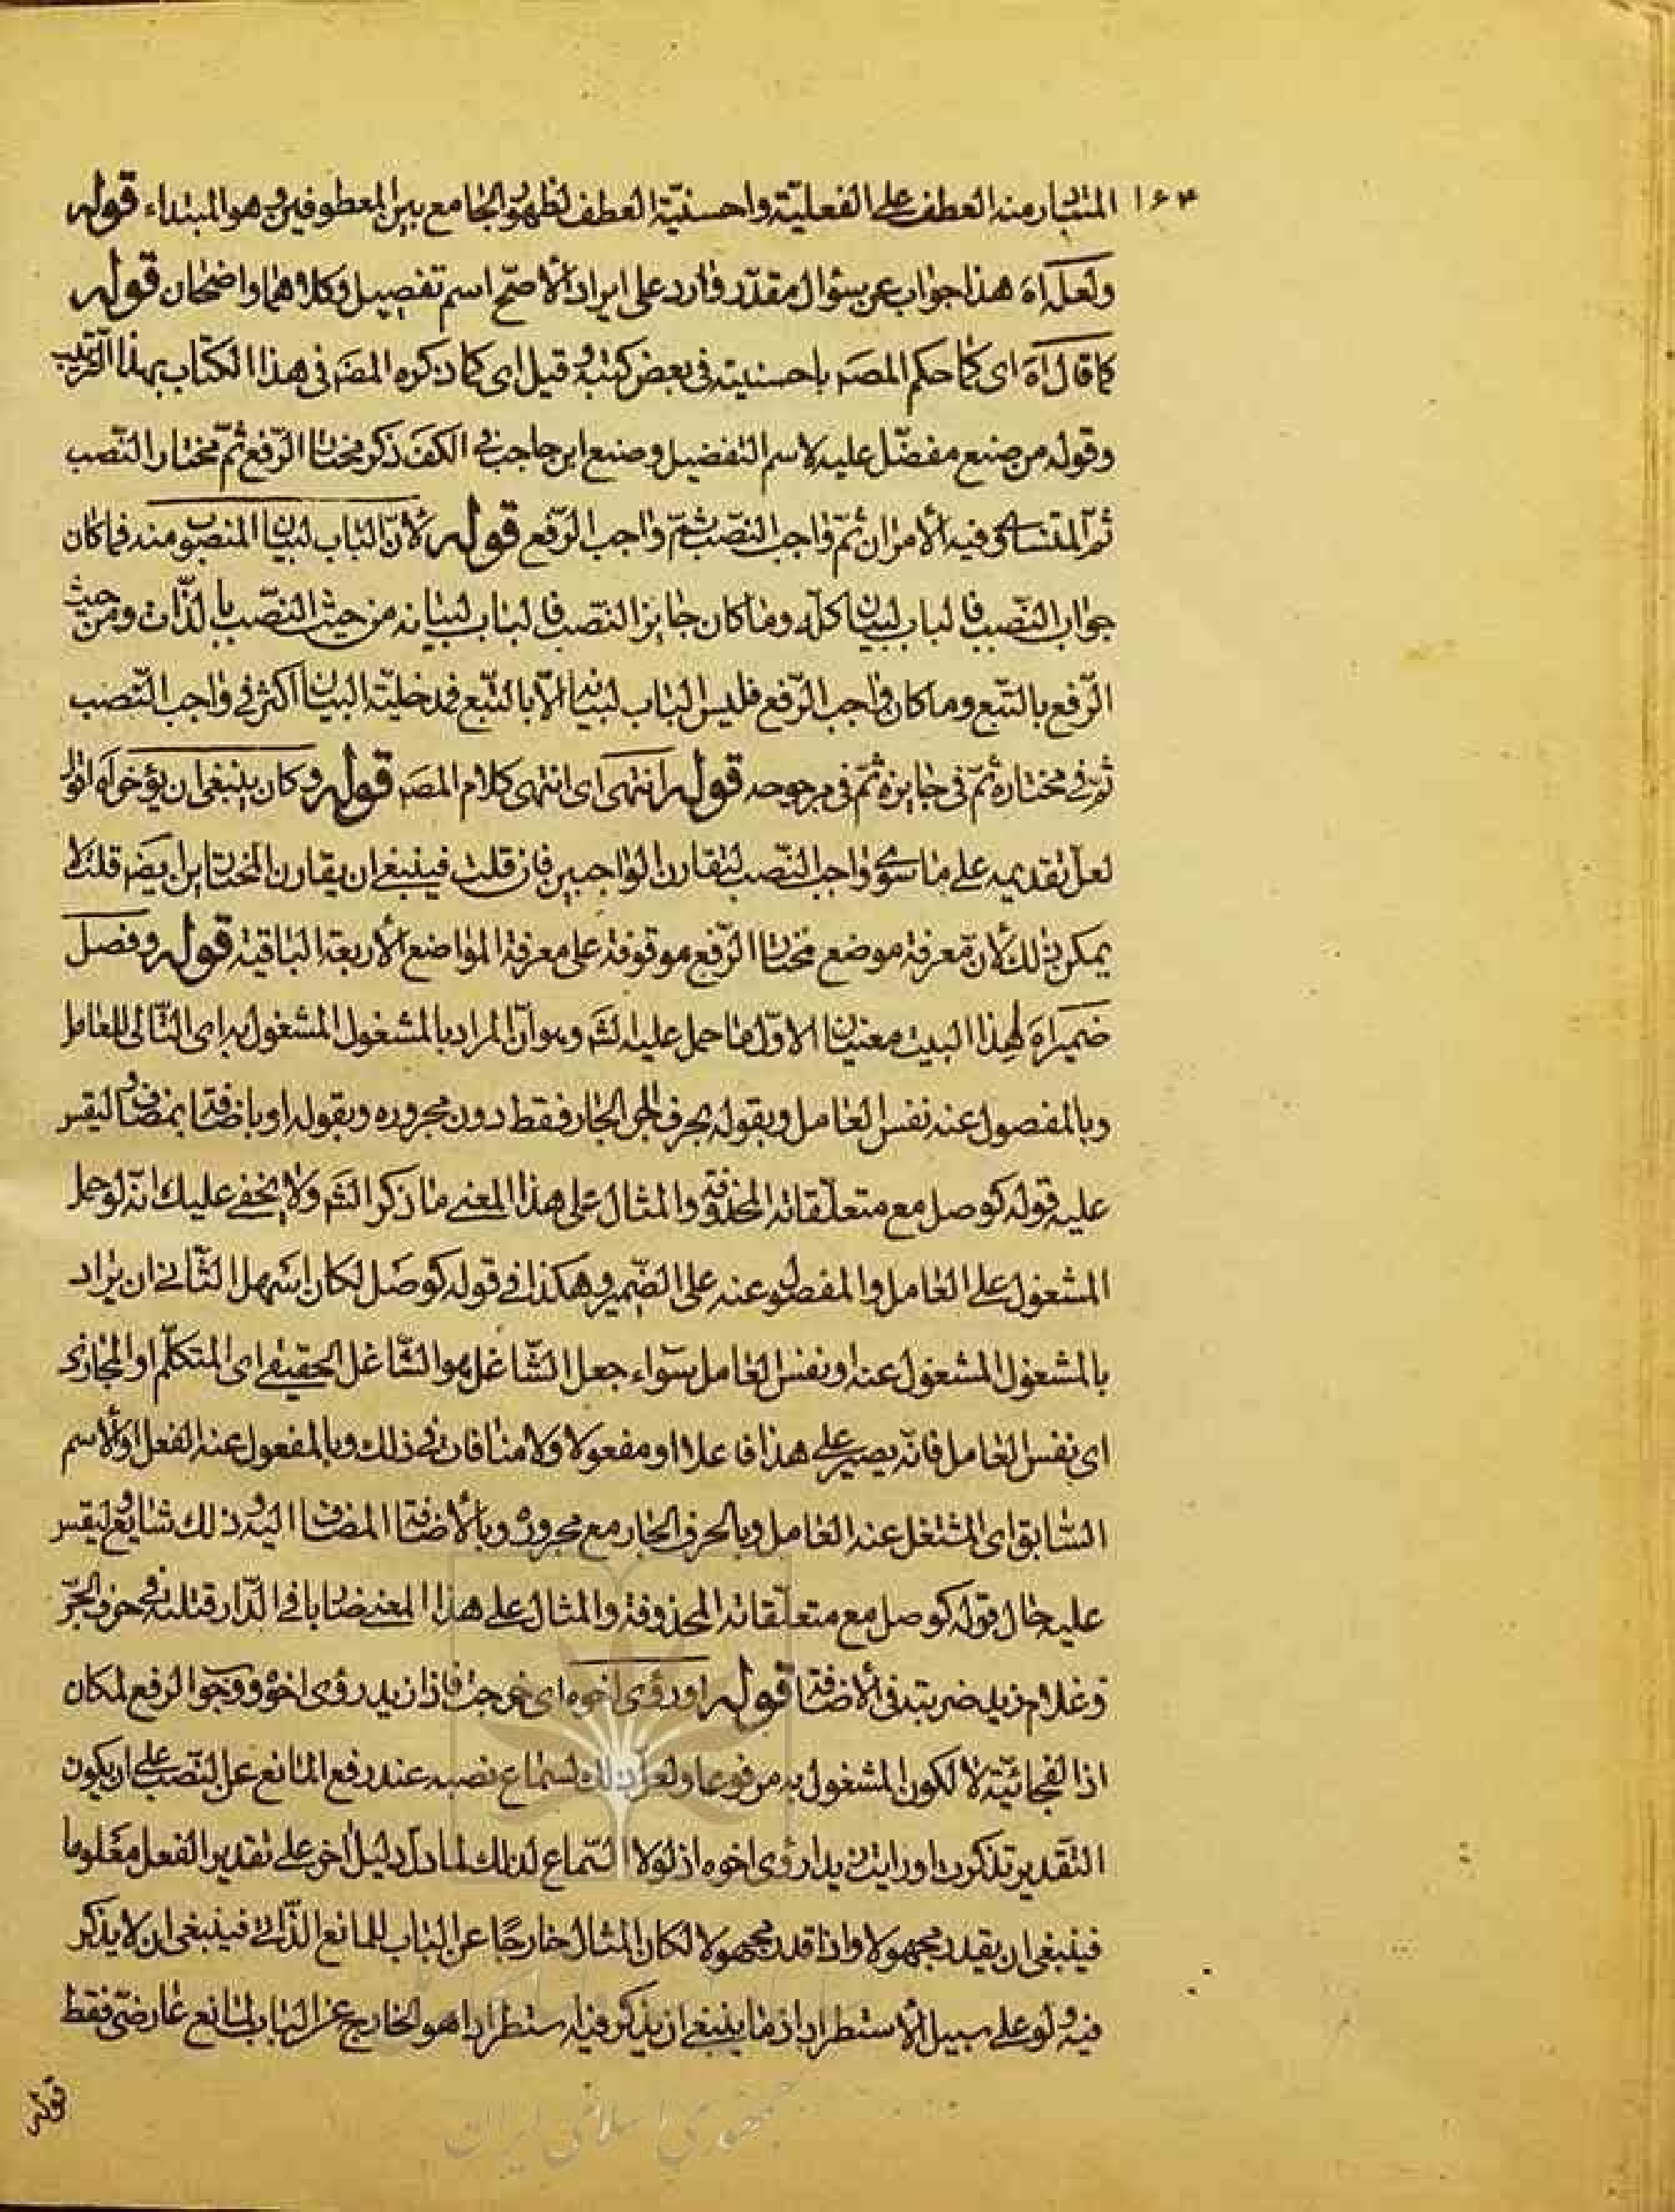 ١٦٣ المتبادر منه العطف على الفعلية واحسنية العطف لظهور الجامع بين المعطوفين وهو المبتداء قوله
ولعله آه هذا جواب عن سؤال مقدر وارد على ايراد الأصح اسم تفصيل وكلاهما واضحان قوله
كما قال آه اى كما حكم المصه باحسنيته فى بعض كتبه وقيل اى كما ذكره المصه فى هذا الكتاب بهذا الترتيب
وقوله من صنع مفضل عليه لاسم التفضيل وصنع ابن حاجب فى الكف ذكر مختار الرفع ثم مختار النصب
ثم المتساوى فيه الأمران ثم واجب النصب ثم واجب الرفع قوله لأن الباب لبيان المنصوب منه فما كان
جواب النصب فالباب لبيان كله وما كان جايز النصب فالباب لبيانه من حيث النصب بالذات ومن حيث
الرفع بالتبع وما كان واجب الرفع فليس الباب لبيانه الا بالتبع فدخلية البيان اكثر فى واجب النصب
ثم فى مختاره ثم فى جايزه ثم فى مرجوحه قوله انتهى اى انتهى كلام المصه قوله وكان ينبغى ان يؤخر آه اقول
لعل تقديمه على ما سوى واجب النصب لتقارن الواجبين فان قلت فينبغى ان يقارن المختارين ايضه قلت لا
يمكن ذلك لأن معرفة موضع مختار الرفع موقوفة على معرفة المواضع الأربعة الباقية قوله وفصل
ضمير آه لهذا البيت معنيان الاول ما حمل عليه الشه وهو ان المراد بالمشغول المشغول به اى التالى للعامل
وبالمفصول عنه نفس العامل وبقوله بحرف الجر الجار فقط دون مجروره وبقوله او باضافة بمضاف وليقس
عليه قوله كوصل مع متعلقاته المحذوفة والمثال على هذا المعنى ما ذكر الشه ولا يخفى عليك انه لو حمل
المشغول على العامل والمفصول عنه على الضمير وهكذا فى قوله كوصل لكان اسهل الثانى ان يراد
بالمشغول المشغول عنه او نفس العامل سواء جعل الشاغل هو الشاغل الحقيقى اى المتكلم او المجازى
اى نفس العامل فانه يصير على هذا فاعلا او مفعولا ولا منافات فى ذلك وبالمفعول عنه الفعل او الأسم
السابق اى المشتغل عنه العامل وبالحرف الجار مع مجروره وبالأضافة المضاف اليه وذلك شايع وليقس
عليه حال قوله كوصل مع متعلقاته المحذوفة والمثال على هذا المعنى ضاربا فى الدار قتلته فى حرف الجر
وغلام زيد ضربته فى الأضافة قوله او رؤى اخوه اى خرجت فاذا زيد رؤى اخوه ووجوب الرفع لمكان
اذا الفجائية لا لكون المشغول به مرفوعا ولعل ذلك لسماع نصبه عند رفع المانع عن النصب على ان يكون
التقدير تذكرت او رايت زيدا رؤى اخوه اذ لولا السماع لذلك لما دل دليل آخر على تقدير الفعل معلوما
فينبغى ان يقدر مجهولا واذا قدر مجهولا لكان المثال خارجا عن الباب للمانع الذاتى فينبغى ان لا يذكر
فيه ولو على سبيل الأستطراد اذ ما ينبغى ان يذكر فيه استطرادا هو الخارج عن الباب لمانع عارضى فقط
قوله
جمهورى اسلامى ايران